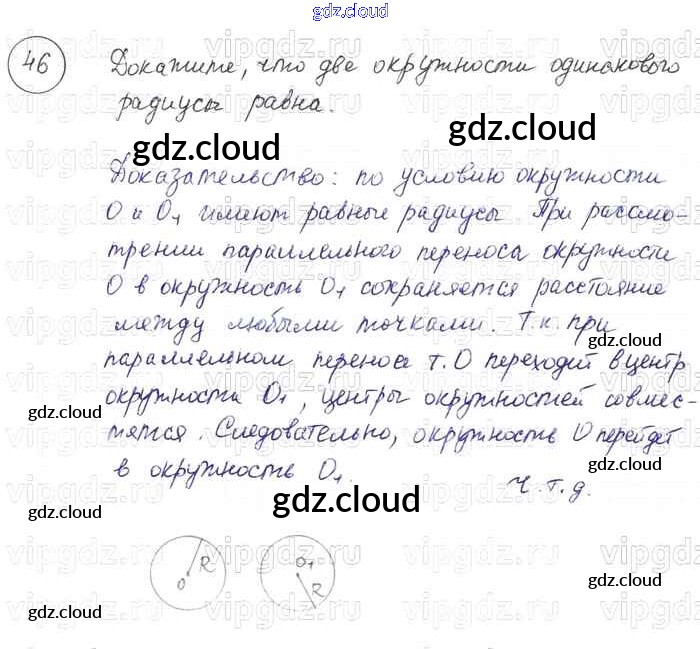 gdz.cloud
46
Докажите, что две окружности одинакового
радиусы равна.
gdz.cloud gdz.cloud
Доказательство: по условию окружности
O и O₁ имеют равные радиусы При рассмо-
трении параллельного переноса окружности
O в окружность O₁ сохраняется расстояние
между любыми точками. Т.к. при
gdz.cloud
параллельном переносе т. O переходит в центр
окружности O₁, центры окружностей совмес-
gdz.cloud gdz.cloud
тятся. Следовательно, окружность O перейдет
в окружность O₁.
gdz.cloud
ч.т.д.
gdz.cloud
gdz.cloud
O R O₁ R
gdz.cloud
gdz.cloud